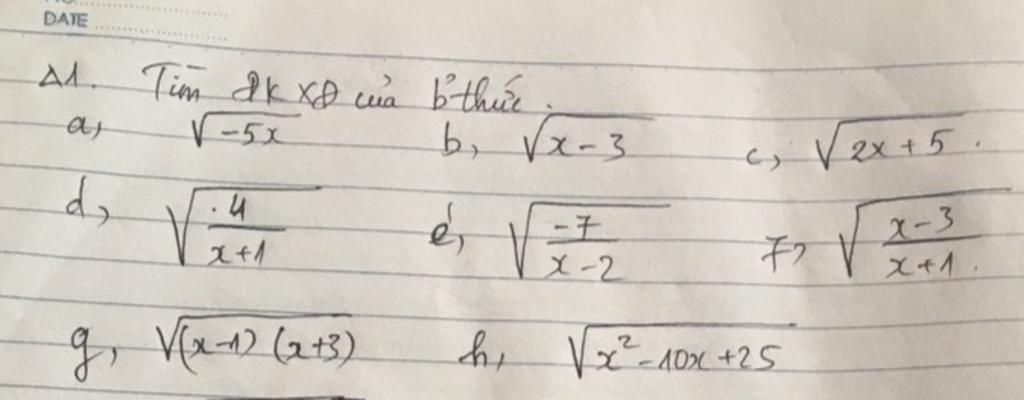 DATE
Δ1. Tìm ĐK XĐ của b' thức.
a, √-5x b, √x-3 c, √2x+5.
d, √4/(x+1) e, √-7/(x-2) f, √(x-3)/(x+1).
g, √(x-1)(x+3) h, √x²-10x+25